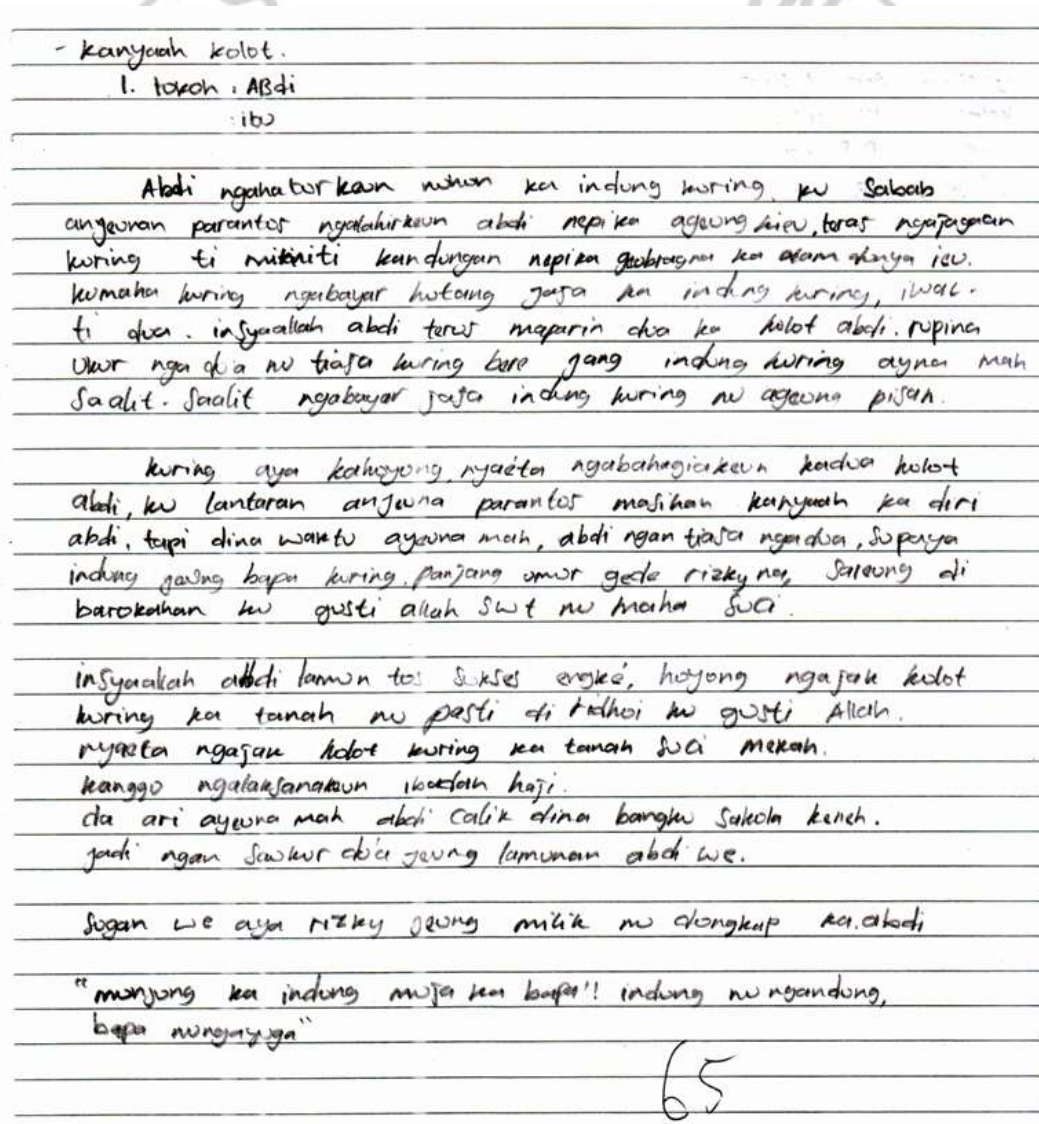 - kanyaah kolot.
1. tokoh : ABdi
: ibu
Abdi ngahaturkeun nuhun ka indung kuring, ku Sabab
anjeunan parantos ngalahirkeun abdi nepi ka ageung kieu, teras ngajagaan
kuring ti mikniti kandungan nepi ka gubragna ka alam dunya ieu.
kumaha kuring ngabayar hutang jasa ka indung kuring, iwal.
ti dua. insyaallah abdi terus maparin dua ka kolot abdi. rupina
ukur nga du'a nu tiasa kuring bere jang indung kuring ayna mah
Saalit-Saalit ngabayar jasa indung kuring nu ageung pisan.
kuring aya kahoyong, nyaéta ngabahagiakeun kadua kolot
abdi, ku lantaran anjeuna parantos masihan kanyaah ka diri
abdi, tapi dina waktu ayeuna mah, abdi ngan tiasa ngadua, Supaya
indung jeung bapa kuring. panjang umur gede rizky na, Sareung di
barokahan ku gusti allah Swt nu maha Suci.
insyaallah abdi lamun tos Sukses engké, hoyong ngajak kolot
kuring ka tanah nu pasti di ridhoi ku gusti Allah.
nyaeta ngajak kolot kuring ka tanah Suci mekah.
kanggo ngalaksanakeun ibadah haji.
da ari ayeuna mah abdi calik dina bangku Sakola keneh.
jadi ngan Saukur du'a jeung lamunan abdi we.
Sugan we aya rizky jeung milik nu dongkap ka.abdi
"munjung ka indung muja ka bapa"! indung nu ngandung,
bapa nu ngayuga"
65